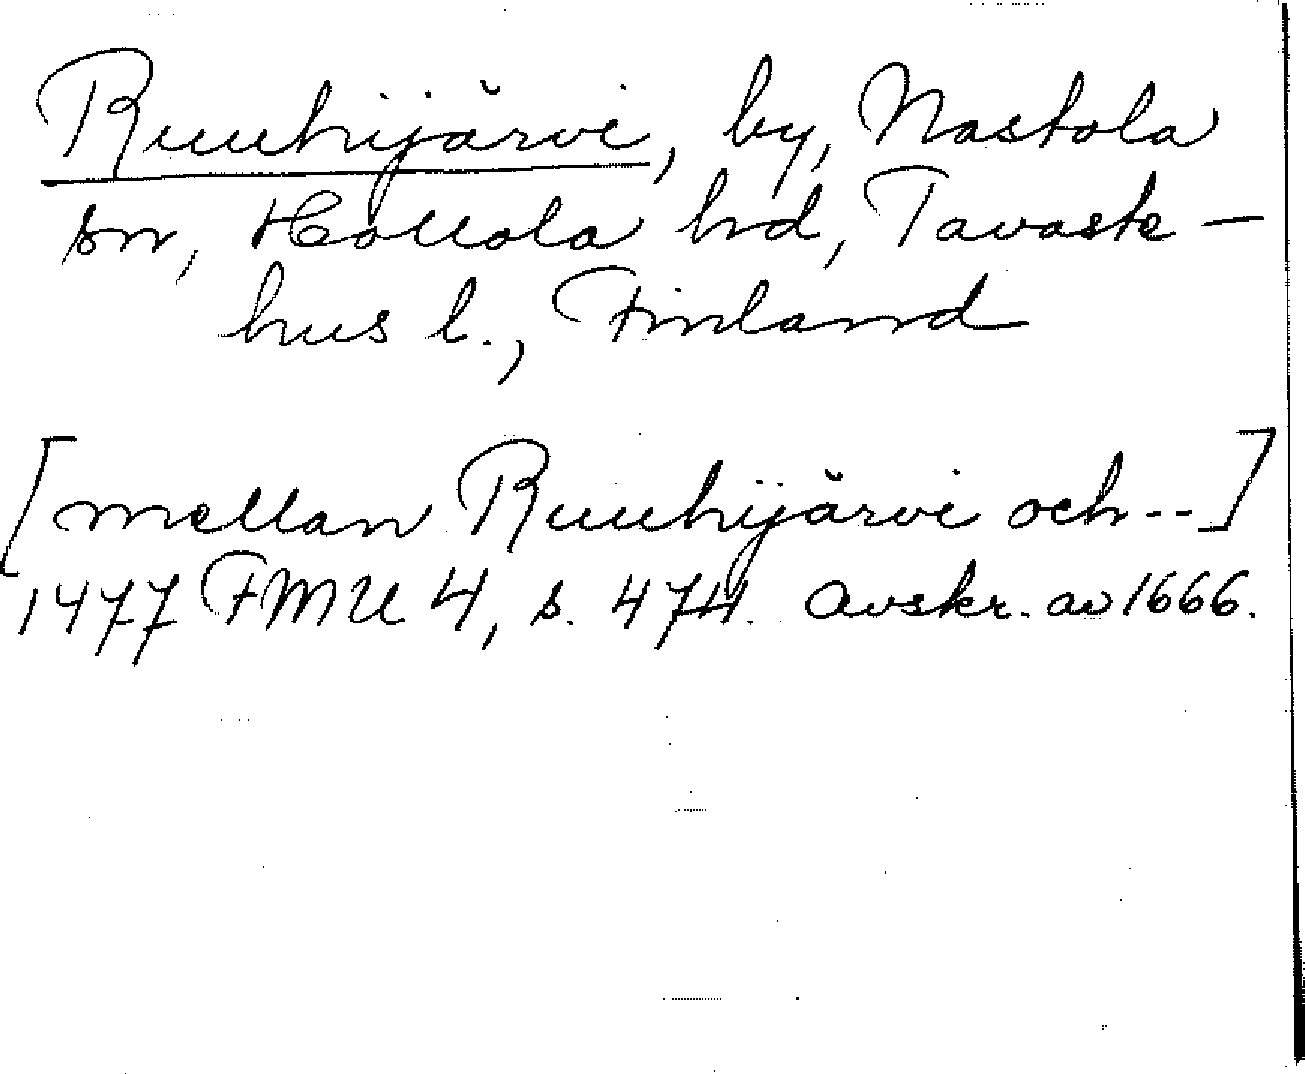 Ruuhijärvi, by, Nastola
sn, Hollola hd, Tavaste-
hus l., Finland
[mellan Ruuhijärvi och--]
1477 FMU 4, s. 474. Avskr. av 1666.